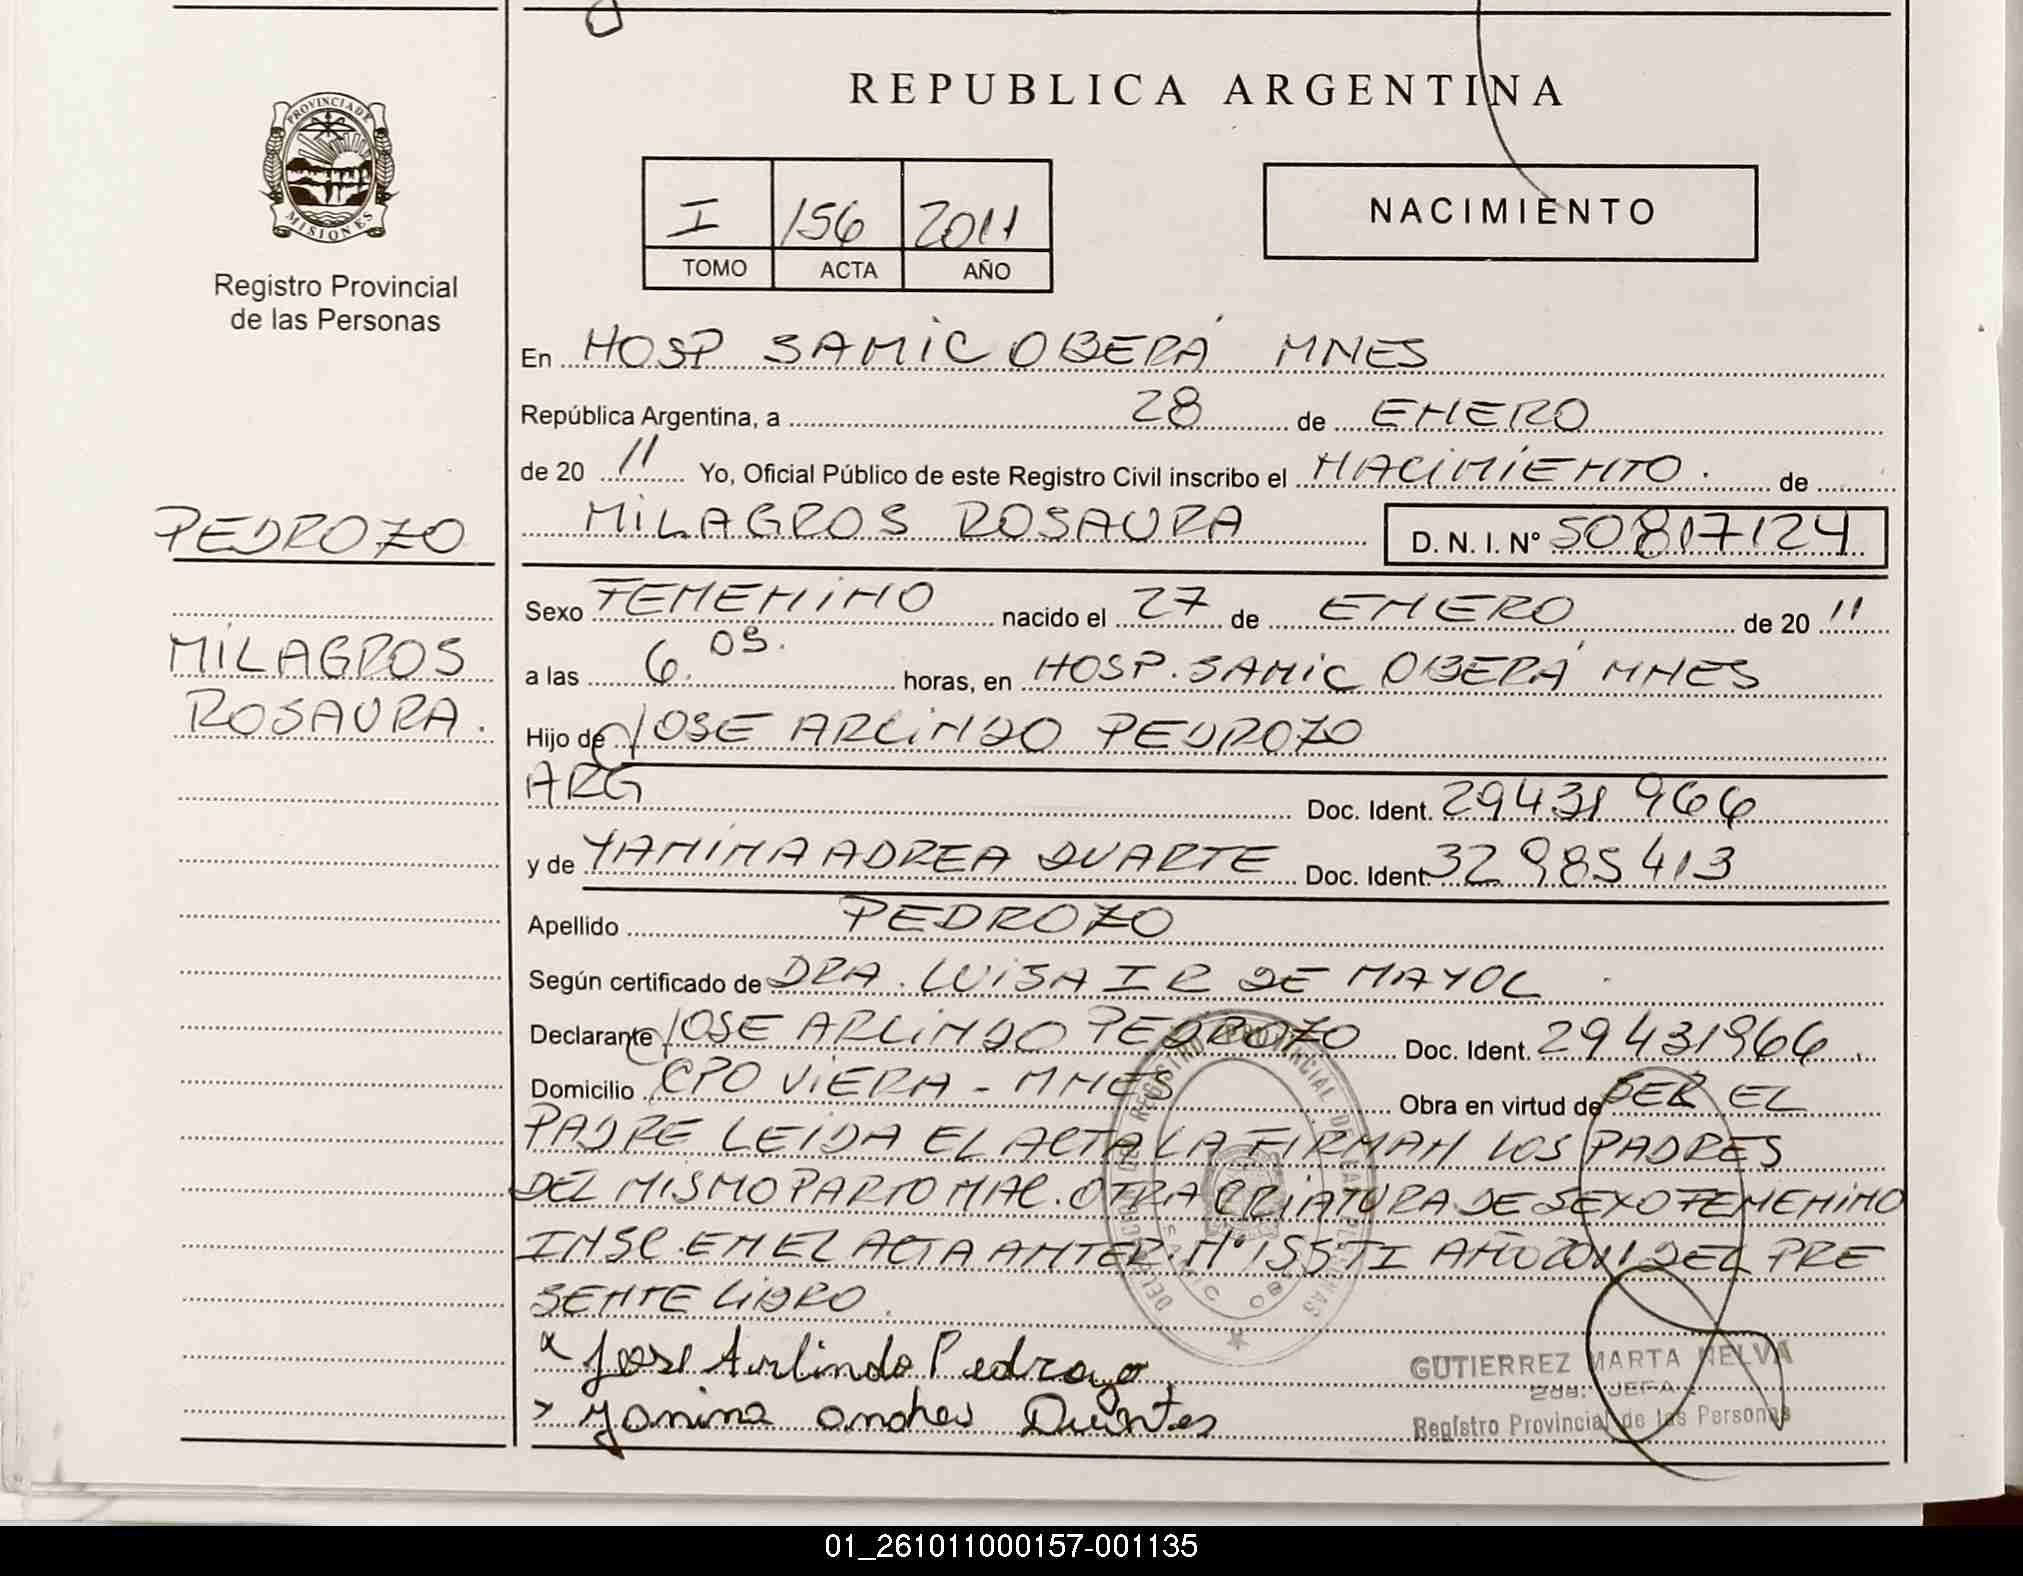 PROVINCIA DE MISIONES
Registro Provincial
de las Personas
REPUBLICA ARGENTINA
I 156 2011
TOMO ACTA AÑO
NACIMIENTO
En HOSP SAMIC OBERÁ MNES
República Argentina, a 28 de ENERO
de 20 11 Yo, Oficial Público de este Registro Civil inscribo el NACIMIENTO. de
MILAGROS ROSAURA D. N. I. Nº 50817124
PEDROZO
MILAGROS
ROSAURA.
Sexo FEMENINO nacido el 27 de ENERO de 20 11
a las 6. 05. horas, en HOSP. SAMIC OBERÁ MNES
Hijo de JOSE ARLINDO PEDROZO
ARG Doc. Ident. 29431966
y de YANINA ADREA DUARTE Doc. Ident. 32985413
Apellido PEDROZO
Según certificado de DRA. LUISA I R DE MAYOL
Declarante JOSE ARLINDO PEDROZO Doc. Ident. 29431966.
Domicilio CPO VIERA - MNES Obra en virtud de SER EL
PADRE LEIDA EL ACTA LA FIRMAN LOS PADRES
DEL MISMO PARTO NAC. OTRA CRIATURA DE SEXO FEMENINO
INSC. EN EL ACTA ANTER. Nº 155 TI AÑO 2011 DEL PRE
SENTE LIBRO.
x Jose Arlindo Pedrozo
GUTIERREZ MARTA NELVA
JEFA
Registro Provincial de las Personas
01_261011000157-001135